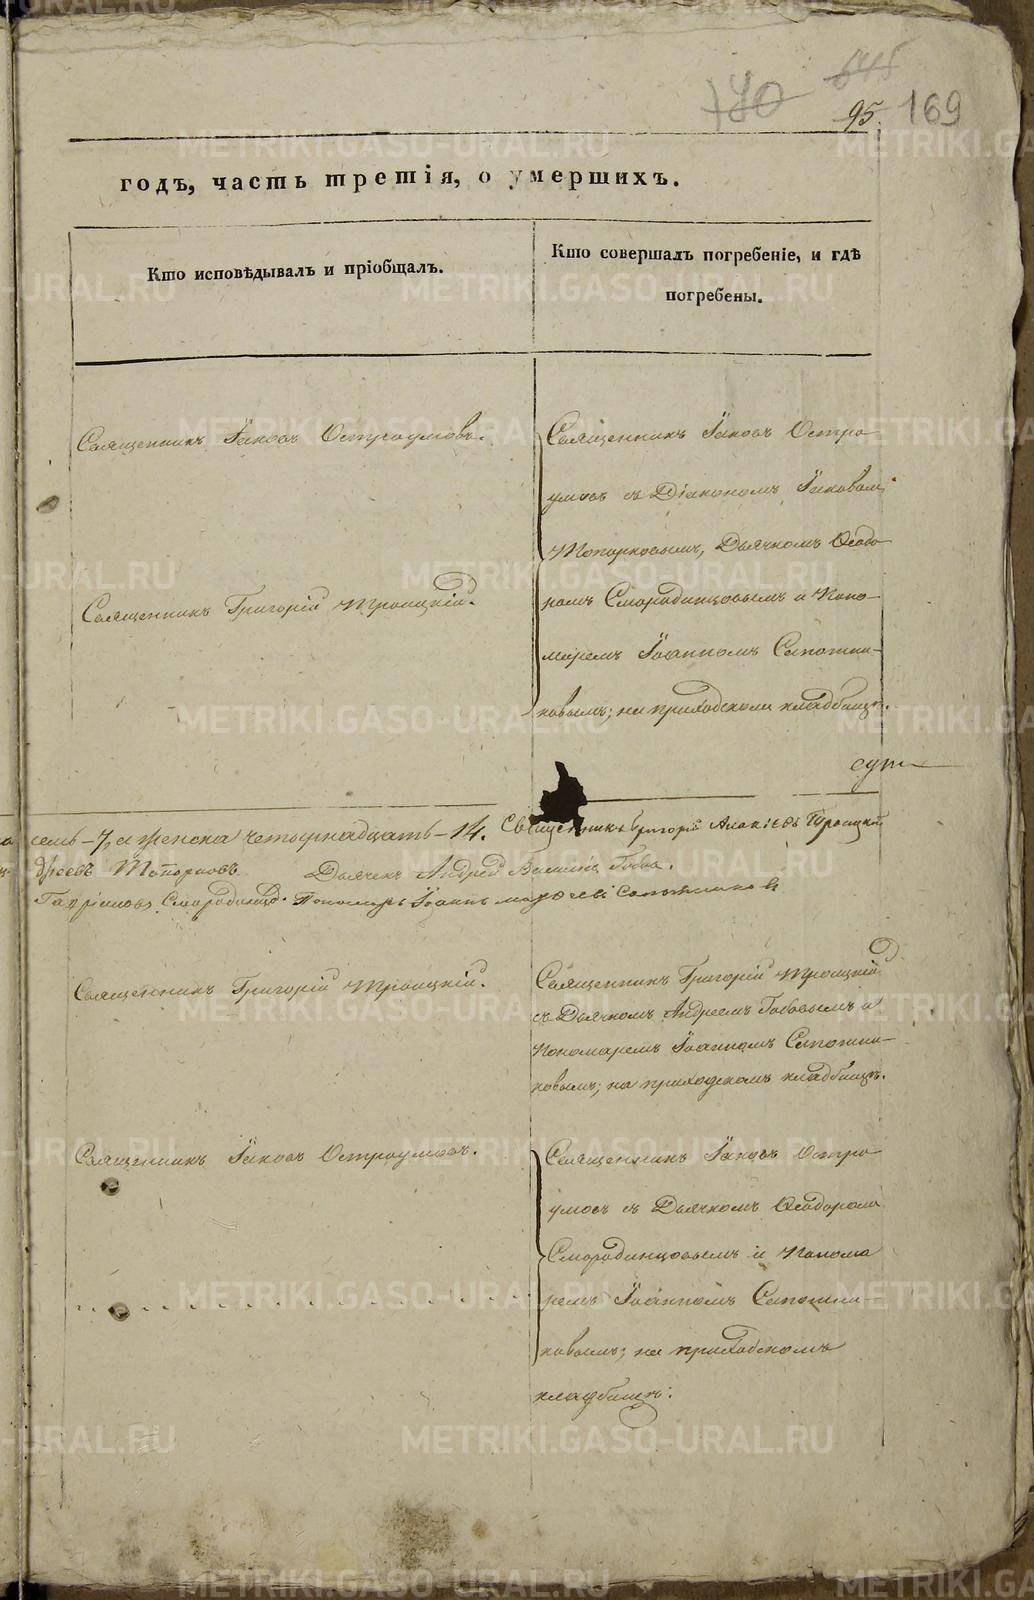 645
170
95. 169
годъ, часть третія, о умершихъ.
Кто исповѣдывалъ и пріобщалъ.
Кто совершалъ погребеніе, и гдѣ
погребены.
Священникъ Іаковъ Остроумовъ.
Священникъ Іаковъ Остро
умовъ съ Діакономъ Іаковомъ
Топорковымъ, Дьячкомъ Ѳеодо
Священникъ Григорій Троицкій.
ромъ Смородинцовымъ и Поно-
маремъ Іоанномъ Сапожни-
ковымъ; на приходскомъ кладбищѣ.
сем - 7, а женска четырнадцать - 14. Священникъ Григорій Алексѣевъ Троицкій
Топорковъ Дьячекъ Андрей Гобовъ.
Гавріиловъ Смородинцовъ. Пономарь Іоаннъ Сапожниковъ
Священникъ Григорій Троицкій.
Священникъ Григорій Троицкій
съ Дьячкомъ Андреемъ Гобовымъ и
Пономаремъ Іоанномъ Сапожни-
ковымъ; на приходскомъ кладбищѣ.
Священникъ Іаковъ Остроумовъ.
Священникъ Іаковъ Остро
умовъ съ Дьячкомъ Ѳеодоромъ
Смородинцовымъ и Понома
ремъ Іоанномъ Сапожни-
ковымъ; на приходскомъ
кладбищѣ.
METRIKI.GASO-URAL.RU